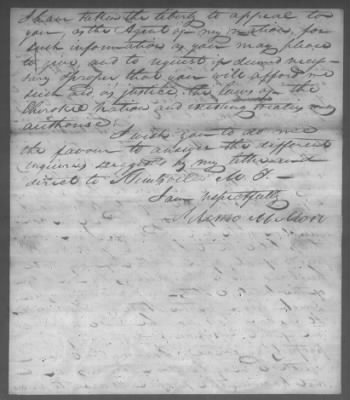 I have taken the liberty to appeal to
you, as the Agent of my nation, for
such information as you may please
to give, and to request if deemed neces-
sary & proper that you will afford me
such aid as justice, the laws of the
Cherokee Nation and existing treaties may
authorise.
I wish you to do me
the favour to answer the different
enquiries suggested by my letter and
direct to
I am respectfully